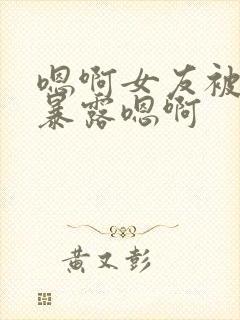 嗯啊女友被
暴露嗯啊
黄又彭